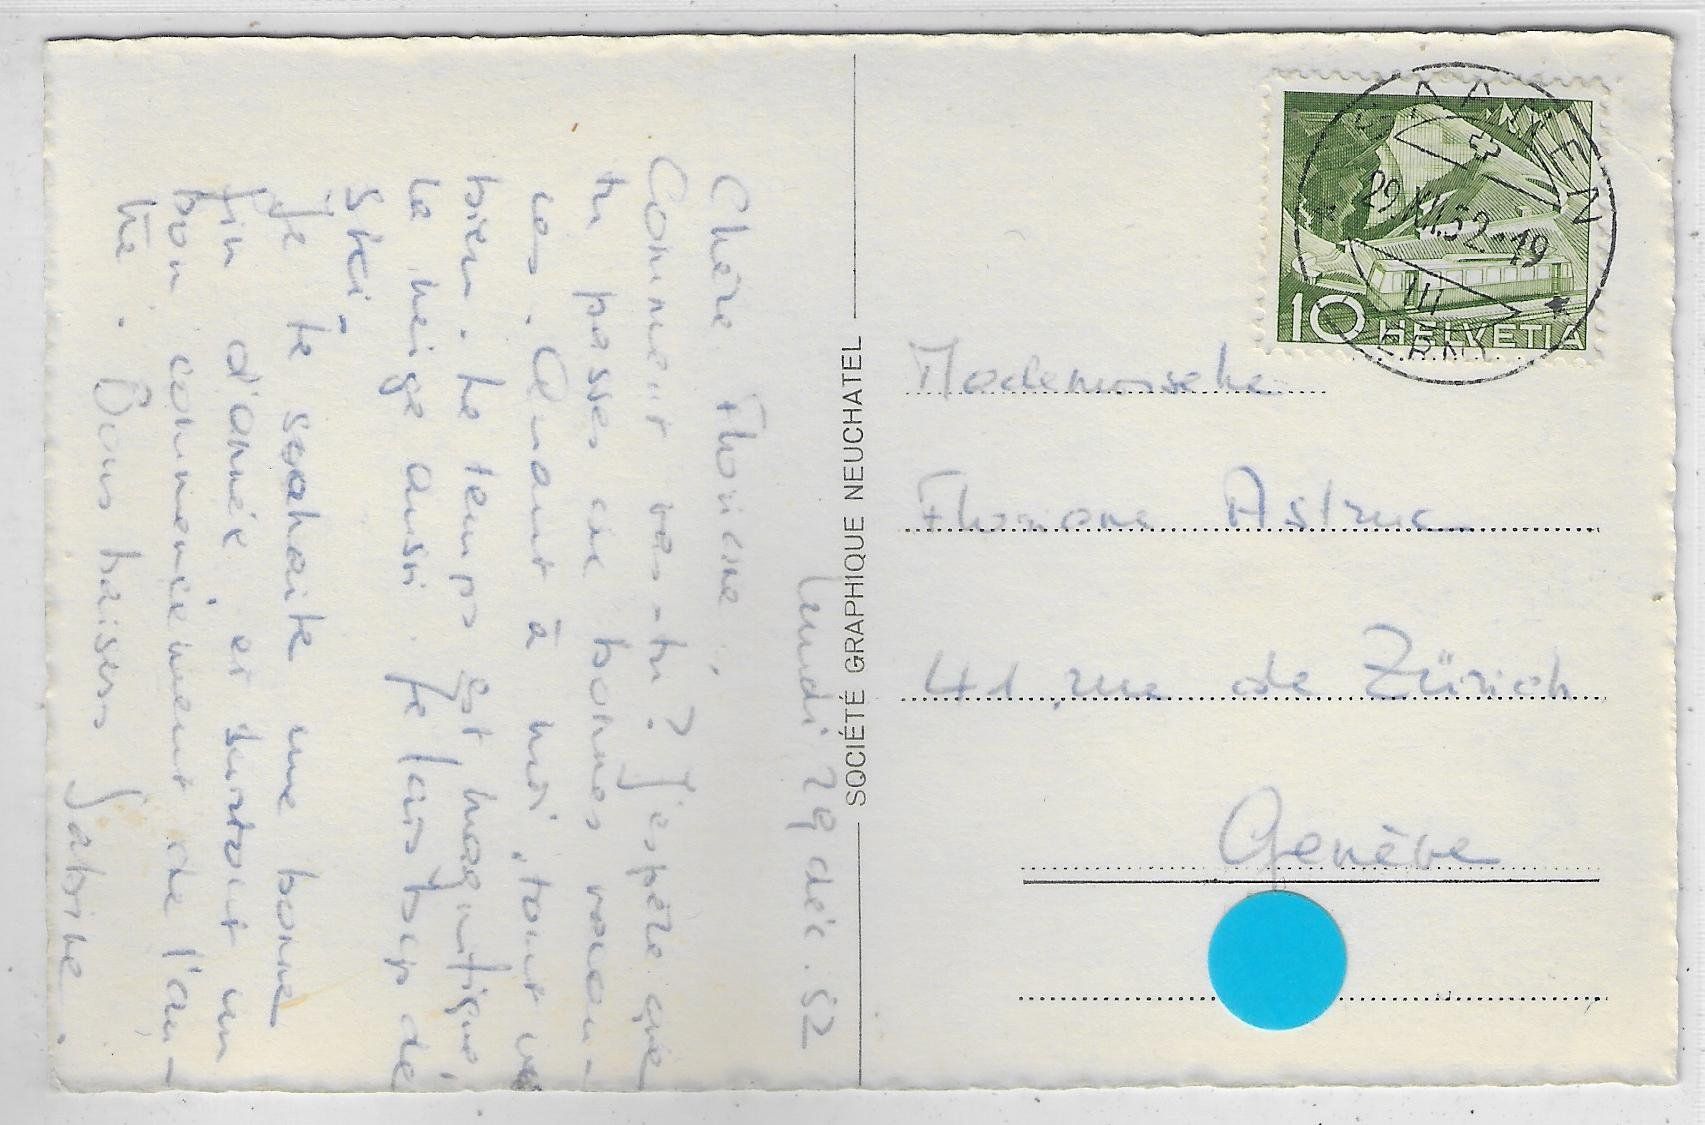 lundi 29 déc. 52
Chère Floriane,
Comment vas-tu? J'espère que
tu passes de bonnes vacan-
ces. Quant à moi, tout va
bien. Le temps est magnifique,
la neige aussi. Je fais bcp de
Ski.
Je te souhaite une bonne
fin d'année et surtout un
bon commencement de l'an-
née. Bons baisers Sabine.
SOCIÉTÉ GRAPHIQUE NEUCHATEL
SAANEN
29.XII.52-19
III
(BERN)
10 HELVETIA
Mademoiselle
Floriane Astruc
41, rue de Zürich
Genève